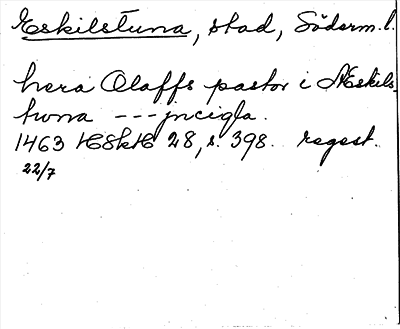 Eskilstuna, stad, Söderm.l.
hera Olaffs pastor i Æskils-
twna --- jncigla.
1463 HSkH 28, s. 398. regest.
22/7